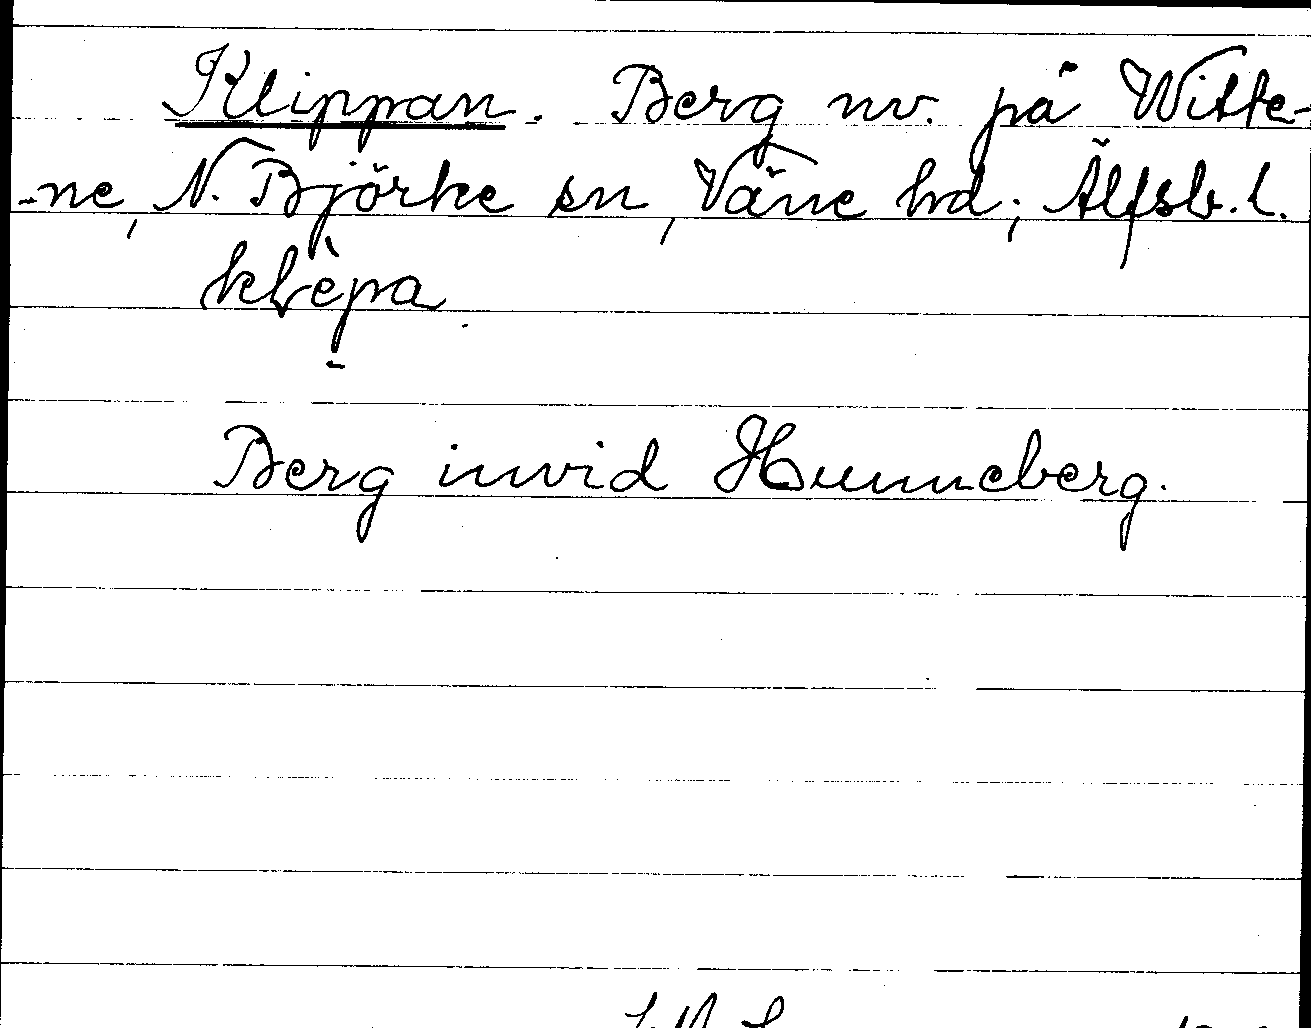 Klippan. Berg nv. på Witte-
-ne, N. Björke sn, Väne hd; Älfsb. l.
klèpa
Berg invid Hunneberg.